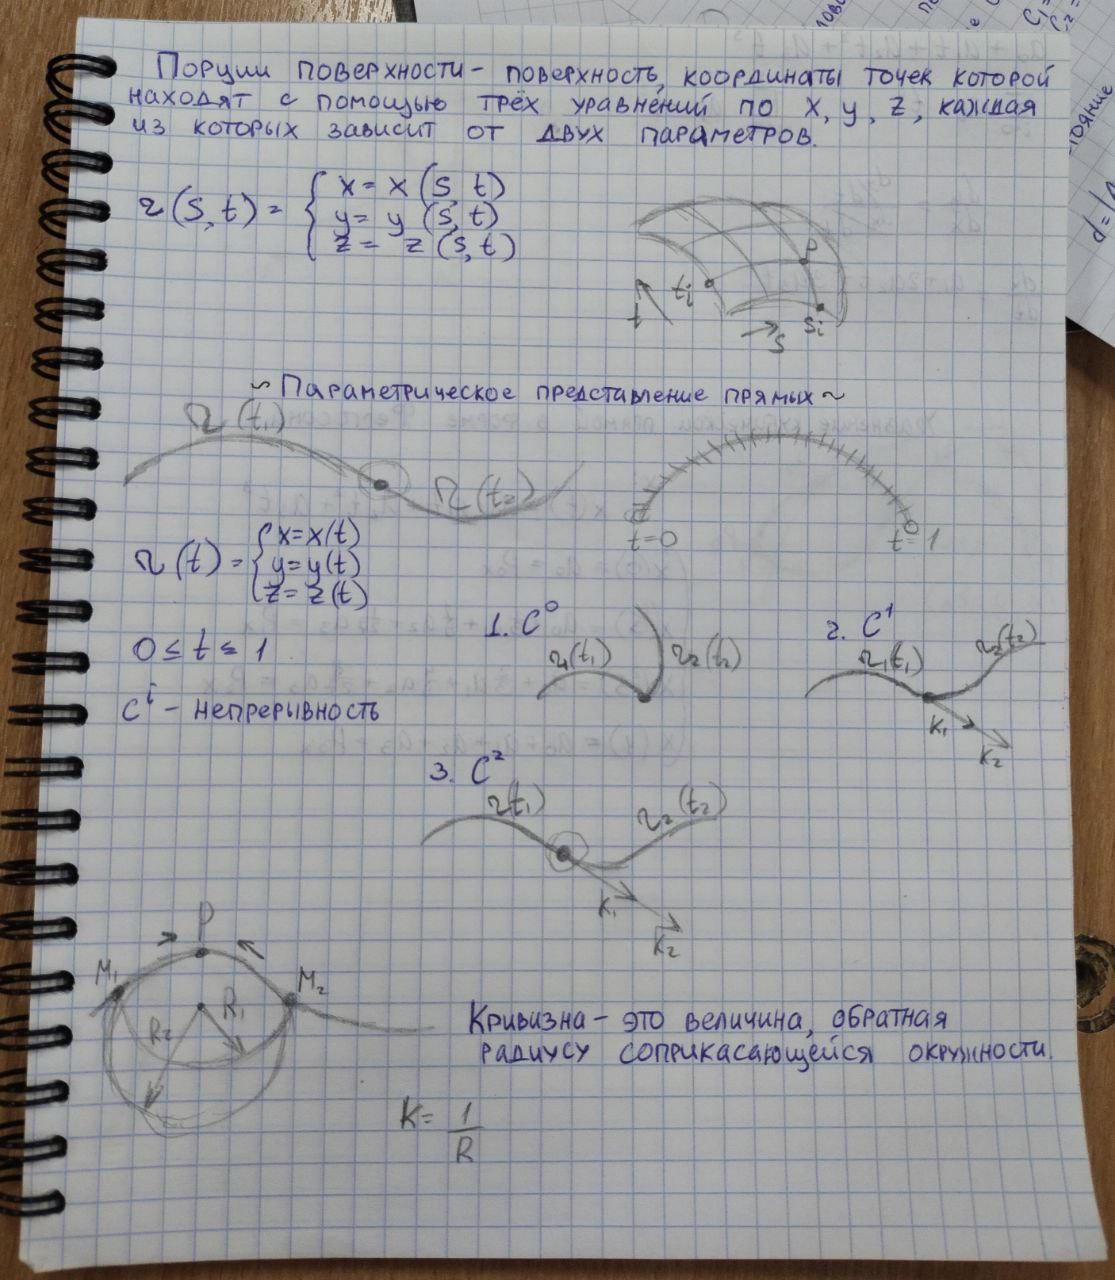 Порции поверхности - поверхность, координаты точек которой
находят с помощью трёх уравнений по x, y, z, каждая
из которых зависит от двух параметров.
r(s, t) = { x = x (s, t)
y = y (s, t)
z = z (s, t)
P
ti
t
Si
S
~ Параметрическое представление прямых ~
r(t₁)
r(t₂)
t=0
t=1
r(t) = { x=x(t)
y=y(t)
z=z(t)
0 ≤ t ≤ 1
1. C⁰
r₁(t₁)
r₂(t₂)
2. C¹
r₁(t₁)
r₂(t₂)
K₁
K₂
Cⁱ - непрерывность
3. C²
r(t₁)
r₂(t₂)
K₁
K₂
P
M₁
M₂
R₁
R₂
Кривизна - это величина, обратная
радиусу соприкасающейся окружности.
K = 1/R